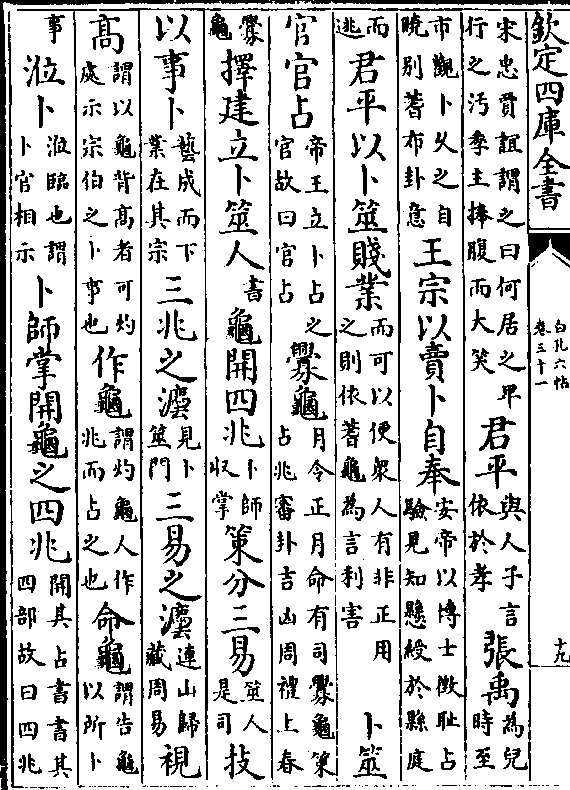 欽定四庫全書 白孔六帖 卷三十一 十九
宋忠賈誼謂之曰何居之卑行之汚季主捧腹而大笑 君平與人子言依於孝 張禹為兒時至
市觀卜久之自曉别蓍布卦意 王宗以賣卜自奉安帝以博士徴耻占驗見知懸綬於縣庭
而逃 君平以卜筮賤業而可以便衆人有非正用之則依蓍龜為言利害 卜筮
官官占帝王立卜占之官故曰官占 釁龜月令正月命有司釁龜筴占兆審卦吉凶周禮上春
釁龜 擇建立卜筮人書 龜開四兆卜師収掌 筴分三易筮人是司 技
以事卜藝成而下業在其宗 三兆之灋見卜筮門 三易之灋連山歸藏周易 視
高謂以龜背高者可灼處示宗伯之卜事也 作龜謂灼龜人作兆而占之也 命龜謂告龜以所卜
事 涖卜涖臨也謂卜官相示 卜師掌開龜之四兆開其占書書其四部故曰四兆